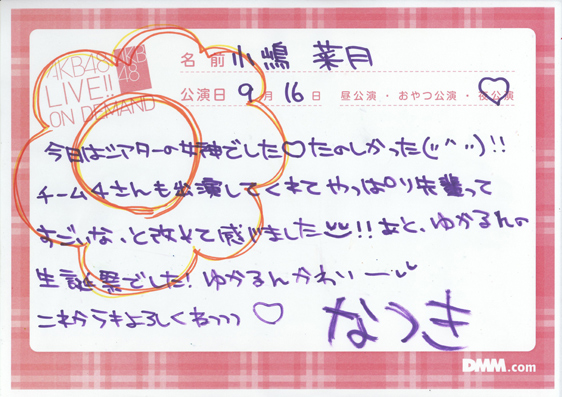 AKB48
LIVE!!
ON DEMAND
AKB
48
名前 小嶋 菜月
公演日 9月 16日 昼公演・おやつ公演・夜公演
今日はシアターの女神でした♡たのしかった(¨^¨)!!
チーム4さんも出演してくれてやっぱり先輩って
すごいな、と改めて感じました!!あと、ゆかるんの
生誕祭でした!ゆかるんかわいー
これからもよろしくねっっっ♡
なつき
DMM.com